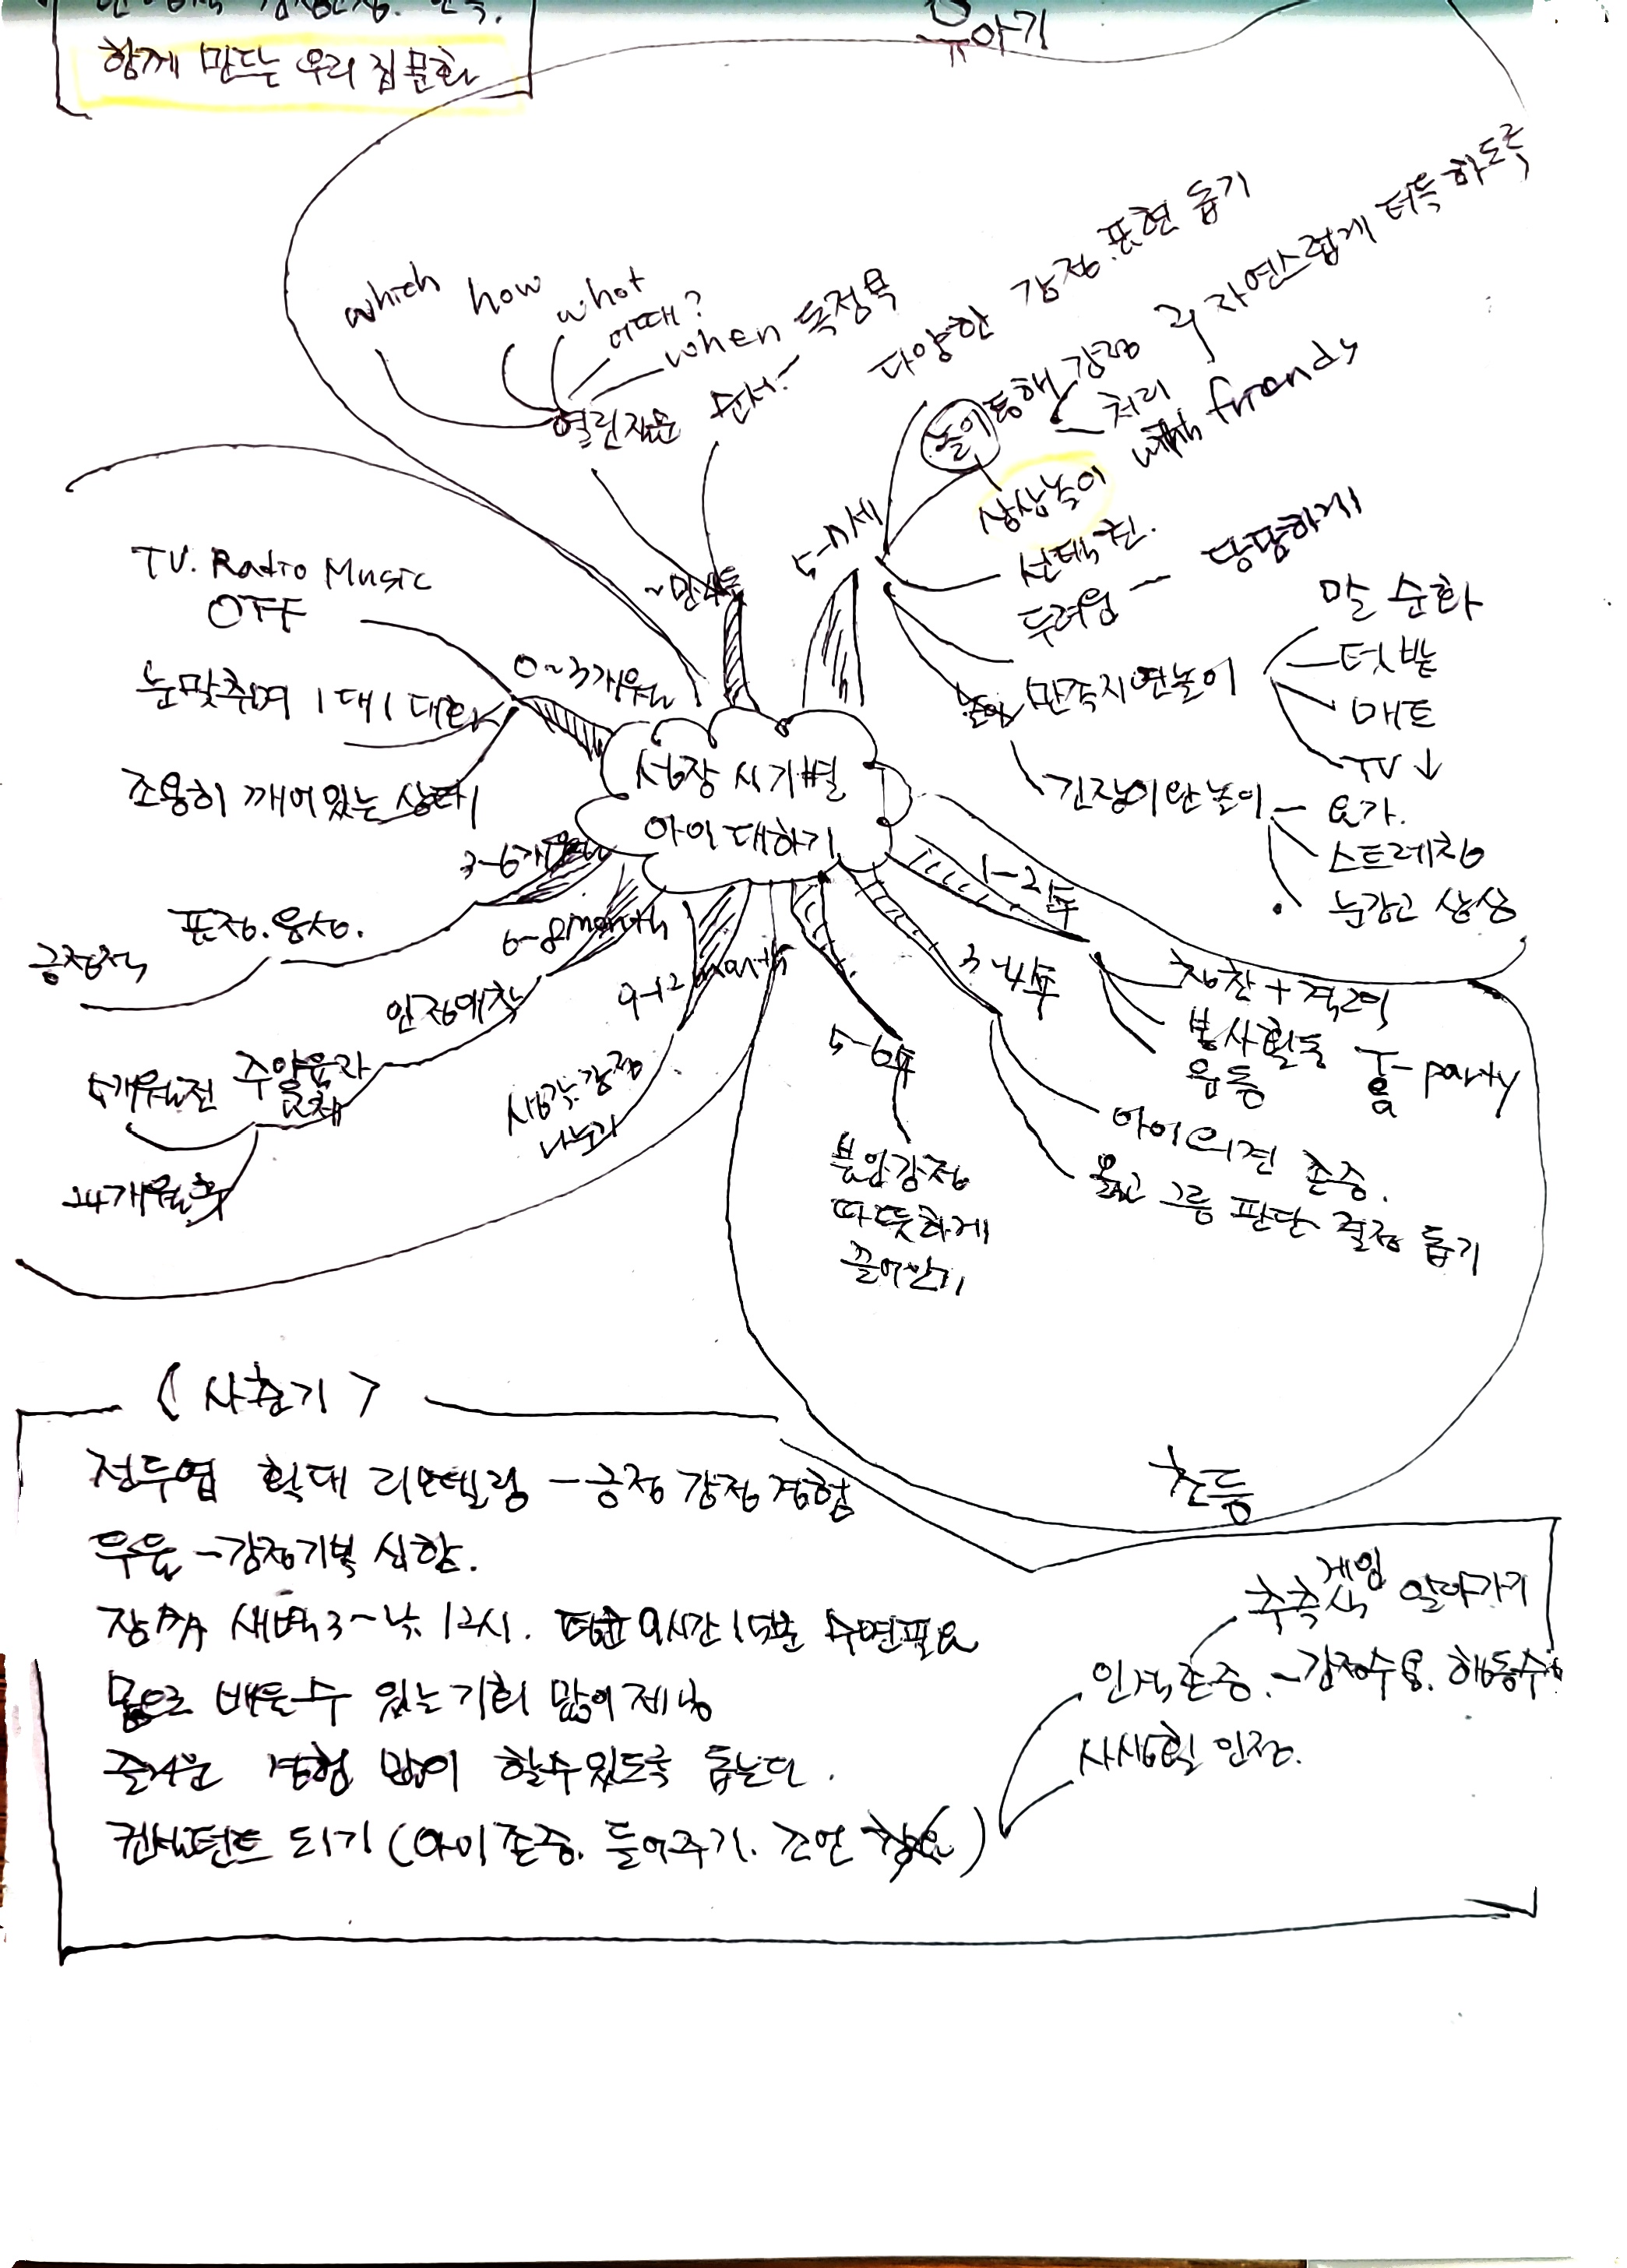 함께 만드는 우리 집 문화
유아기
which how what
어때?
when 독정욕
열린질문 순서.
다양한 감정.표현 돕기
놀이 통해 감정 자연스럽게 터득하도록
처리
상상놀이 with friends
~만4세
5-7세
선택권.
두려움 - 당당하게
만족지연놀이
말 순화
텃밭
매트
TV ↓
긴장이완놀이 - 요가.
스트레칭
눈감고 상상
TV. Radio Music
OFF
눈맞추며 1대1 대화
조용히 깨어있는 상태
0~3개월
성장 시기별
아이 대하기
3-6개월
표정.
긍정적
6-8month
안정애착
주양육자
교체
5개월전
24개월 후
9-12 month
생각.감정
나누기
5-6학
분안감정
따뜻하게
끌어안기
3-4학
아이의견 존중.
옳고 그름 판단 결정 돕기
1-2학
칭찬+격려
봉사활동
운동
T- party
용
초등
<사춘기>
전두엽 확대 리모델링 - 긍정 감정 경험
우울 - 감정기복 심함.
잠 새벽3~낮 12시. 평균 9시간 15분 수면필요
몸으로 배울수 있는 기회 많이 제공
즐거운 경험 많이 할수있도록 돕는다.
컨설턴트 되기 (아이존중. 들어주기. 조언)
게임
축측식 알아가기
인격존중. - 감정수용. 행동수정
사생활 인정.